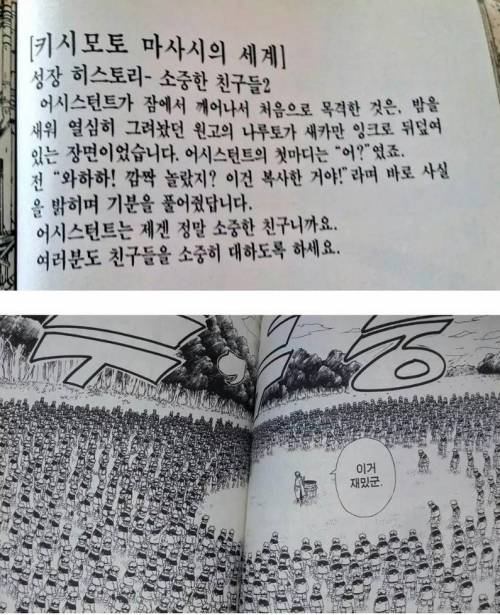 [키시모토 마사시의 세계]
성장 히스토리- 소중한 친구들2
어시스턴트가 잠에서 깨어나서 처음으로 목격한 것은, 밤을
새워 열심히 그려놨던 원고의 나루토가 새카만 잉크로 뒤덮여
있는 장면이었습니다. 어시스턴트의 첫마디는 "어?"였죠.
전 "와하하! 깜짝 놀랐지? 이건 복사한 거야!"라며 바로 사실
을 밝히며 기분을 풀어줬답니다.
어시스턴트는 제겐 정말 소중한 친구니까요.
여러분도 친구들을 소중히 대하도록 하세요.
이거
재밌군.